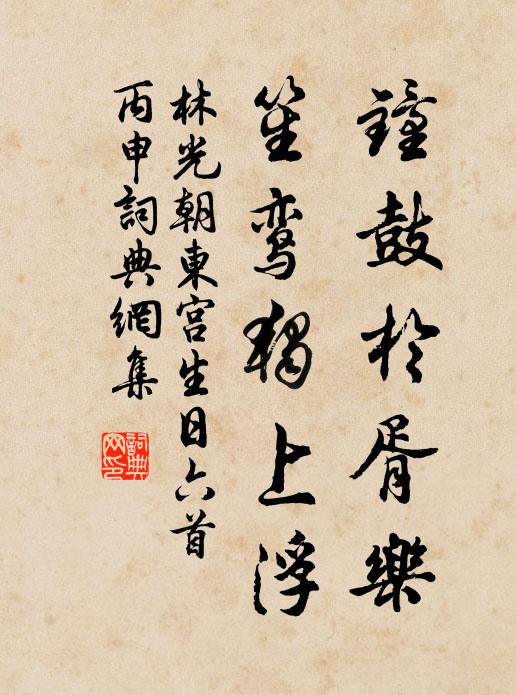 鐘鼓於胥樂
笙鸾獨上浮
林光朝東宮生日六首
丙申詞典網集
詞典
网印